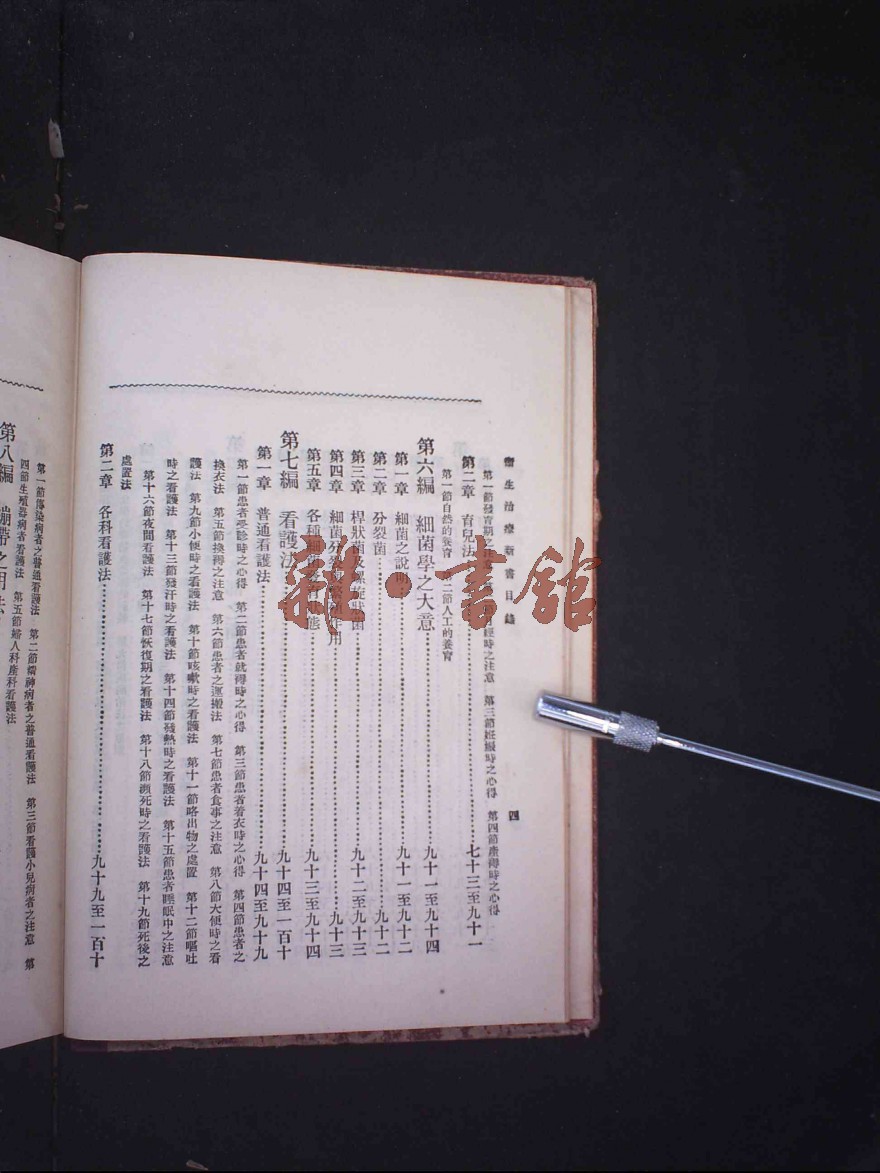 衛生治療新書目錄　四
第一節發育期之注意　月經時之注意　第三節妊娠時之心得　第四節產褥時之心得
第二章　育兒法　七十三至九十一
第一節自然的養育　第二節人工的養育
第六編　細菌學之大意　九十一至九十四
第一章　細菌之說明　九十一至九十二
第二章　分裂菌　九十二
第三章　桿狀菌及螺旋狀菌　九十二至九十三
第四章　細菌分裂　作用　九十三
第五章　各種細菌　態　九十三至九十四
第七編　看護法　九十四至一百十
第一章　普通看護法　九十四至九十九
第一節患者受診時之心得　第二節患者就褥時之心得　第三節患者着衣時之心得　第四節患者之
換衣法　第五節換褥之注意　第六節患者之運搬法　第七節患者食事之注意　第八節大便時之看
護法　第九節小便時之看護法　第十節咳嗽時之看護法　第十一節略出物之處置　第十二節嘔吐
時之看護法　第十三節發汗時之看護法　第十四節發熱時之看護法　第十五節患者睡眠中之注意
第十六節夜間看護法　第十七節恢復期之看護法　第十八節瀕死時之看護法　第十九節死後之
處置法
第二章　各科看護法　九十九至一百十
第一節傳染病者之普通看護法　第二節精神病者之普通看護法　第三節看護小兒病者之注意　第
四節生殖器病者看護法　第五節婦人科產科看護法
第八編　繃帶之用法
雜·書館